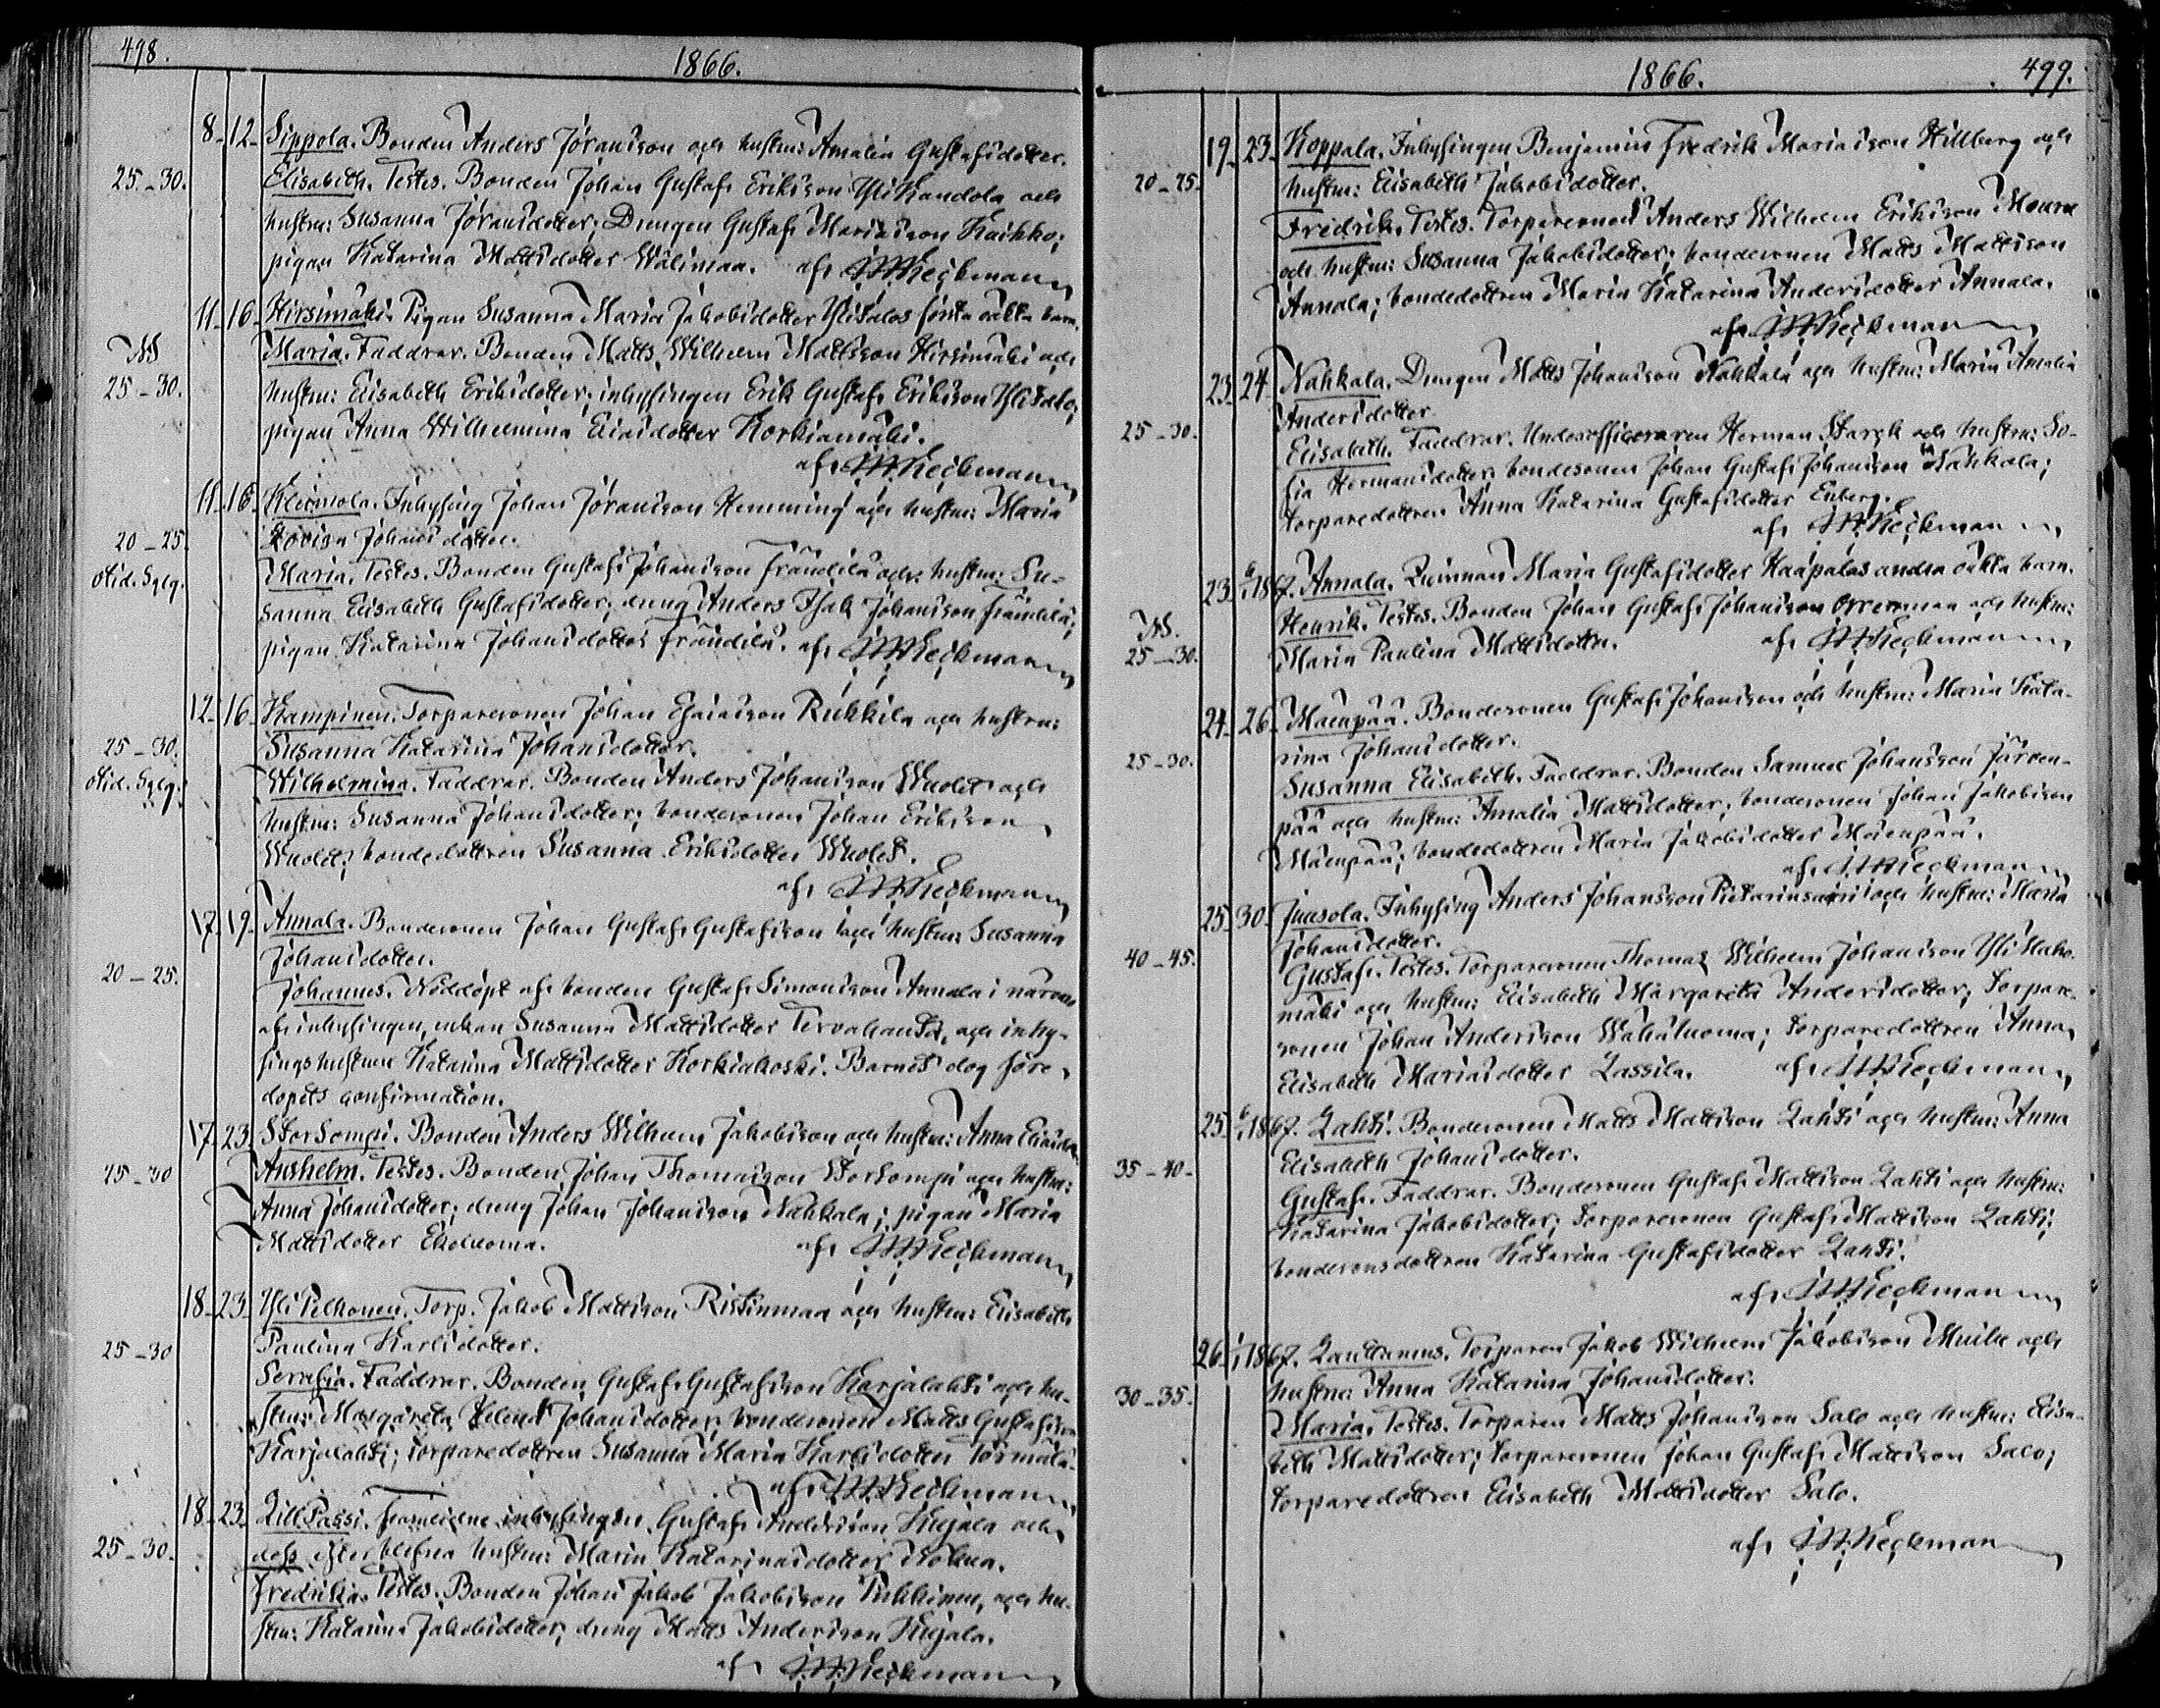 498.
1866.
8. 12. Sippola. Bonden Anders Jöransson och hustru: Amalia Gustafsdotter.
25-30. Elisabeth. Testes. Bonden Johan Gustaf Eriksson Yli Kandola och
hustru: Susanna Jöransdotter; Drengen Gustaf Mariasson Kaihko;
pigan Katarina Mattsdotter Wälimaa. af
11. 16. Hirsimäki. Pigan Susanna Maria Jakobsdotter Ylisalos första oäkta barn.
Maria. Faddrar. Bonden Matts Wilhelm Mattsson Hirsimäki och
25-30. hustru: Elisabeth Eriksdotter; inhysingen Erik Gustaf Eriksson Ylisalo;
pigan Anna Wilhelmina Eliaedotter Korkiamäki.
af
11. 16. Klemola. Inhysing Johan Jöransson Hemming och hustru: Maria
20-25. Lovisa Johansdotter.
Maria. Testes. Bonden Gustaf Johansson Frändilä och hustru: Su-
sanna Elisabeth Gustafsdotter; dreng Anders Isak Johansson Frändilä;
pigan Katarina Johansdotter Frändilä. af
12. 16. Kampinen. Torparesonen Johan Esaiasson Rukkila och hustru:
25-30. Susanna Katarina Johansdotter.
Wilhelmina. Faddrar. Bonden Anders Johansson Wuolet och
hustru: Susanna Johansdotter; bondesonen Johan Eriksson
Wuolet; bondedottren Susanna Eriksdotter Wuolet.
af
17. 19. Annala. Bondesonen Johan Gustaf Gustafsson och hustru: Susanna
Johansdotter.
20-25. Johannes. Nöddöpt af bonden Gustaf Simonsson Annala i närvaro
af inhysingen, enkan Susanna Mattsdotter Tervahauta, och inhy-
singshustrun Katarina Mattsdotter Korkiakoski. Barnet dog före
dopets confirmation.
17. 23. StorSompi. Bonden Anders Wilhelm Jakobsson och hustru: Anna
25-30 Anshelm. Testes. Bonden Johan Thomasson StorSompi och hustru:
Anna Johansdotter; dreng Johan Johansson Nahkala; pigan Maria
Mattsdotter Ekoluoma. af
18. 23. Yli Pelkonen. Torp. Jakob Mattsson Ristinmaa och hustru: Elisabeth
25-30 Paulina Karlsdotter.
Serafia. Faddrar. Bonden Gustaf Gustafsson Karjalahti och hu-
stru: Margareta Helena Johansdotter; bondesonen Matts Gustafsson
Karjalahti; torparedottren Susanna Maria Karlsdotter Törmälä.
af
18. 23. LillPassi. Framlidne inhysingen Gustaf Andersson Kujala och
25-30. dess efterblefna hustru: Maria Katarinasdotter
Fredrika. Testes. Bonden Johan Jakob Jakobsson och hu-
stru: Katarina Jakobsdotter; dreng Matts Andersson Kujala.
af
1866.
499.
19. 23. Koppala. Inhysingen Benjamin Fredrik Mariasson Hillberg och
20-25. hustru: Elisabeth Jakobsdotter.
Fredrik. Testes. Torparesonen Anders Wilhelm Eriksson
och hustru: Susanna Jakobsdotter; bondesonen Matts Mattsson
Annala; bondedottren Maria Katarina Andersdotter Annala.
af
23. 24. Nahkala. Drengen Matts Johansson Nahkala och hustru: Maria Amalia
Andersdotter
25-30. Elisabeth. Faddrar. Underofficeraren Herman Starck och hustru: So-
fia Hermansdotter; bondesonen Johan Gustaf Johansson Nahkala;
torparedottren Anna Katarina Gustafsdotter Enberg.
af
23. 6/1 1867. Annala. Qvinnan Maria Gustafsdotter Haapalas andra oäkta barn.
Henrik. Testes. Bonden Johan Gustaf Johansson och hustru:
25-30. Maria Paulina Mattsdotter. af
24. 26. Mäenpää. Bondesonen Gustaf Johansson och hustru: Maria Kata-
25-30. rina Johansdotter.
Susanna Elisabeth. Faddrar. Bonden Samuel Johansson Järven-
pää och hustru: Amalia Mattsdotter; bondesonen Johan Jakobsson
Mäenpää; bondedottren Maria Jakobsdotter Mäenpää.
af
25. 30. Juusola. Inhysing Anders Johansson Pietarinsaari och hustru: Maria
Johansdotter.
40-45. Gustaf. Testes. Torparesonen Thomas Wilhelm Johansson
mäki och hustru: Elisabeth Margareta Andersdotter; Torpare-
sonen Johan Andersson Wähäluoma; torparedottren Anna
Elisabeth Mariasdotter Lassila. af
25. 6/1 1867. Lahti. Bondesonen Matts Mattsson Lahti och hustru: Anna
35-40. Elisabeth Johansdotter.
Gustaf. Faddrar. Bondesonen Gustaf Mattsson Lahti och hustru:
Katarina Jakobsdotter; torparesonen Gustaf Mattsson Lahti;
bondesonsdottren Katarina Gustafsdotter Lahti.
af
26. 1/1 1867. Lanttamus. Torparen Jakob Wilhelm Jakobsson och
30-35. hustru: Anna Katarina Johansdotter.
Maria. Testes. Torparen Matts Johansson Salo och hustru: Elisa-
beth Mattsdotter; torparesonen Johan Gustaf Mattsson Salo;
torparedottren Elisabeth Mattsdotter Salo.
af